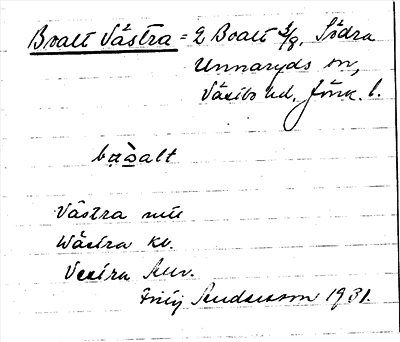 Boalt Västra = 2 Boalt 3/8, Södra
Unnaryds sn,
Västbo hd, Jönk. l.
boalt
Västra
Wästra kv.
Vestra
Andersson 1931.